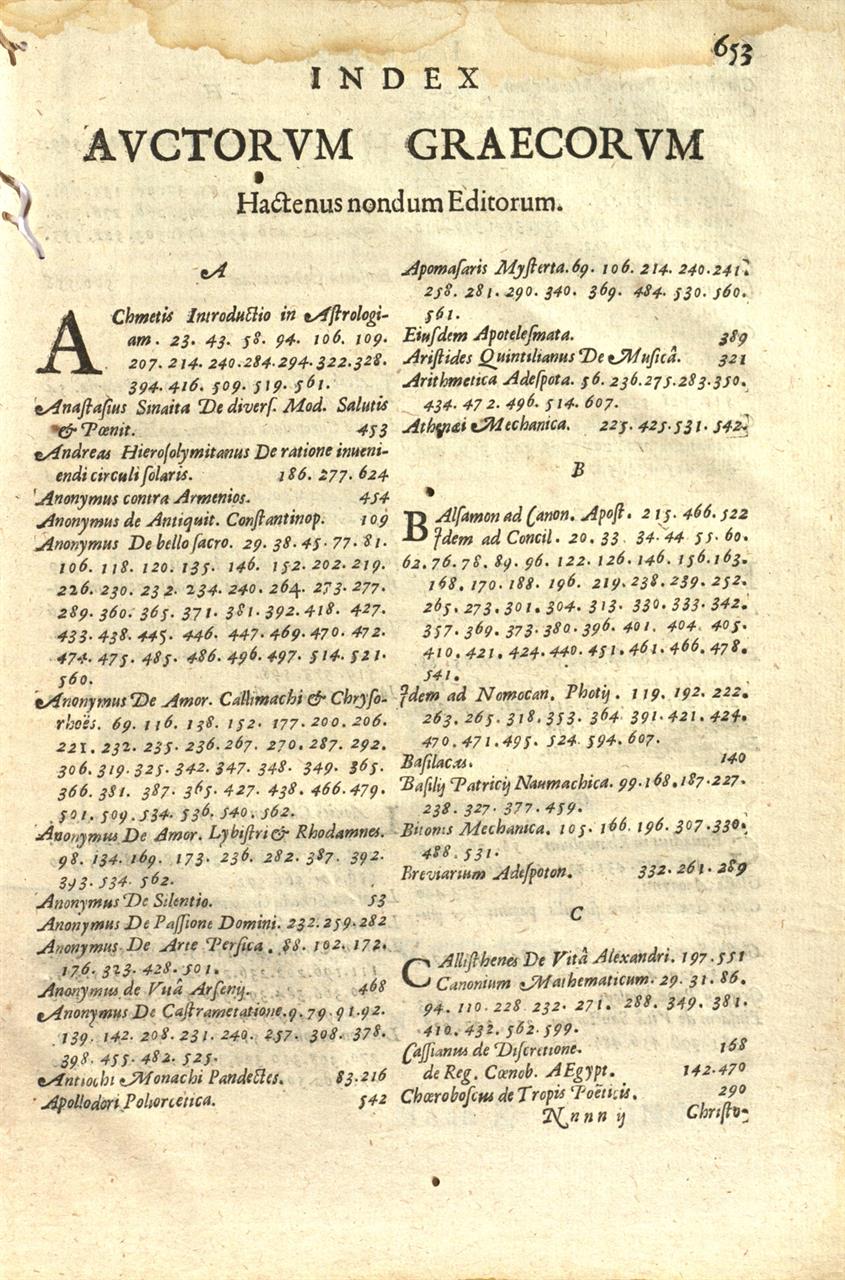 653
INDEX
AVCTORVM GRAECORVM
Hactenus nondum Editorum.
A
AChmetis Introductio in Astrologi-
am. 23. 43. 58. 94. 106. 109.
207. 214. 240. 284. 294. 322. 328.
394. 416. 509. 519. 561.
Anastasius Sinaita De divers. Mod. Salutis
& Pœnit. 453
Andreas Hierosolymitanus De ratione inueni-
endi circuli solaris. 186. 277. 624
Anonymus contra Armenios. 454
Anonymus de Antiquit. Constantinop. 109
Anonymus De bello sacro. 29. 38. 45. 77. 81.
106. 118. 120. 135. 146. 152. 202. 219.
226. 230. 232. 234. 240. 264. 273. 277.
289. 360. 365. 371. 381. 392. 418. 427.
433. 438. 445. 446. 447. 469. 470. 472.
474. 475. 485. 486. 496. 497. 514. 521.
560.
Anonymus De Amor. Callimachi & Chryso-
rhoës. 69. 116. 138. 152. 177. 200. 206.
221. 232. 235. 236. 267. 270. 287. 292.
306. 319. 325. 342. 347. 348. 349. 365.
366. 381. 387. 365. 427. 438. 466. 479.
501. 509. 534. 536. 540. 562.
Anonymus De Amor. Lybistri & Rhodamnes.
98. 134. 169. 173. 236. 282. 387. 392.
393. 534. 562.
Anonymus De Silentio. 53
Anonymus De Passione Domini. 232. 259. 282
Anonymus De Arte Persica. 88. 102. 172.
176. 323. 428. 501.
Anonymus de Vitâ Arsenij. 468
Anonymus De Castrametatione. 9. 79. 91. 92.
139. 142. 208. 231. 240. 257. 308. 378.
398. 455. 482. 525.
Antiochi Monachi Pandectes. 83. 216
Apollodori Poliorcetica. 542
Apomasaris Mysterta. 69. 106. 214. 240. 241.
258. 281. 290. 340. 369. 484. 530. 560.
561.
Eiusdem Apotelesmata. 389
Aristides Quintilianus De Musicâ. 321
Arithmetica Adespota. 56. 236. 275. 283. 350.
434. 472. 496. 514. 607.
Athenæi Mechanica. 225. 425. 531. 542.
B
BAlsamon ad Canon. Apost. 215. 466. 522
Idem ad Concil. 20. 33. 34. 44. 55. 60.
62. 76. 78. 89. 96. 122. 126. 146. 156. 163.
168. 170. 188. 196. 219. 238. 239. 252.
265. 273. 301. 304. 313. 330. 333. 342.
357. 369. 373. 380. 396. 401. 404. 405.
410. 421. 424. 440. 451. 461. 466. 478.
541.
Idem ad Nomocan. Photij. 119. 192. 222.
263. 265. 318. 353. 364. 391. 421. 424.
470. 471. 495. 524. 594. 607.
Basilacas. 140
Basilij Patricij Naumachica. 99. 168. 187. 227.
238. 327. 377. 459.
Bitonis Mechanica. 105. 166. 196. 307. 330.
488. 531.
Breviarium Adespoton. 332. 261. 289
C
CAllisthenes De Vitâ Alexandri. 197. 551
Canonium Mathematicum. 29. 31. 86.
94. 110. 228. 232. 271. 288. 349. 381.
410. 432. 562. 599.
Cassianus de Discretione. 168
de Reg. Cœnob. AEgypt. 142. 470
Chœroboscus de Tropis Poëticis. 290
Nnnn ij Christo-